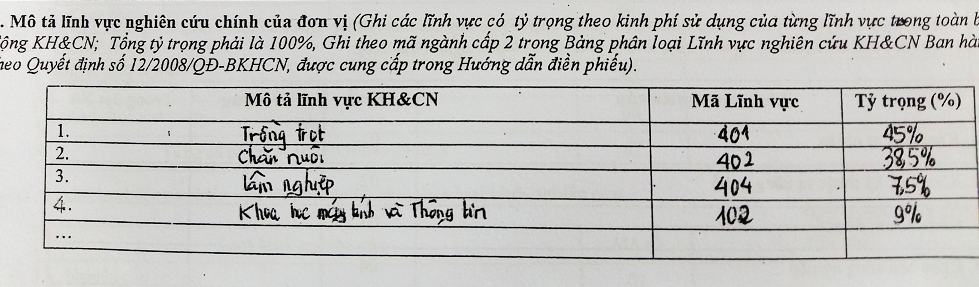 . Mô tả lĩnh vực nghiên cứu chính của đơn vị (Ghi các lĩnh vực có tỷ trọng theo kinh phí sử dụng của từng lĩnh vực trong toàn b
ộng KH&CN; Tổng tỷ trọng phải là 100%, Ghi theo mã ngành cấp 2 trong Bảng phân loại Lĩnh vực nghiên cứu KH&CN Ban hàn
heo Quyết định số 12/2008/QĐ-BKHCN, được cung cấp trong Hướng dẫn điền phiếu).
Mô tả lĩnh vực KH&CN Mã Lĩnh vực Tỷ trọng (%)
1. Trồng trọt 401 45%
2. Chăn nuôi 402 38,5%
3. Lâm nghiệp 404 7,5%
4. Khoa học máy tính và Thông tin 102 9%
...